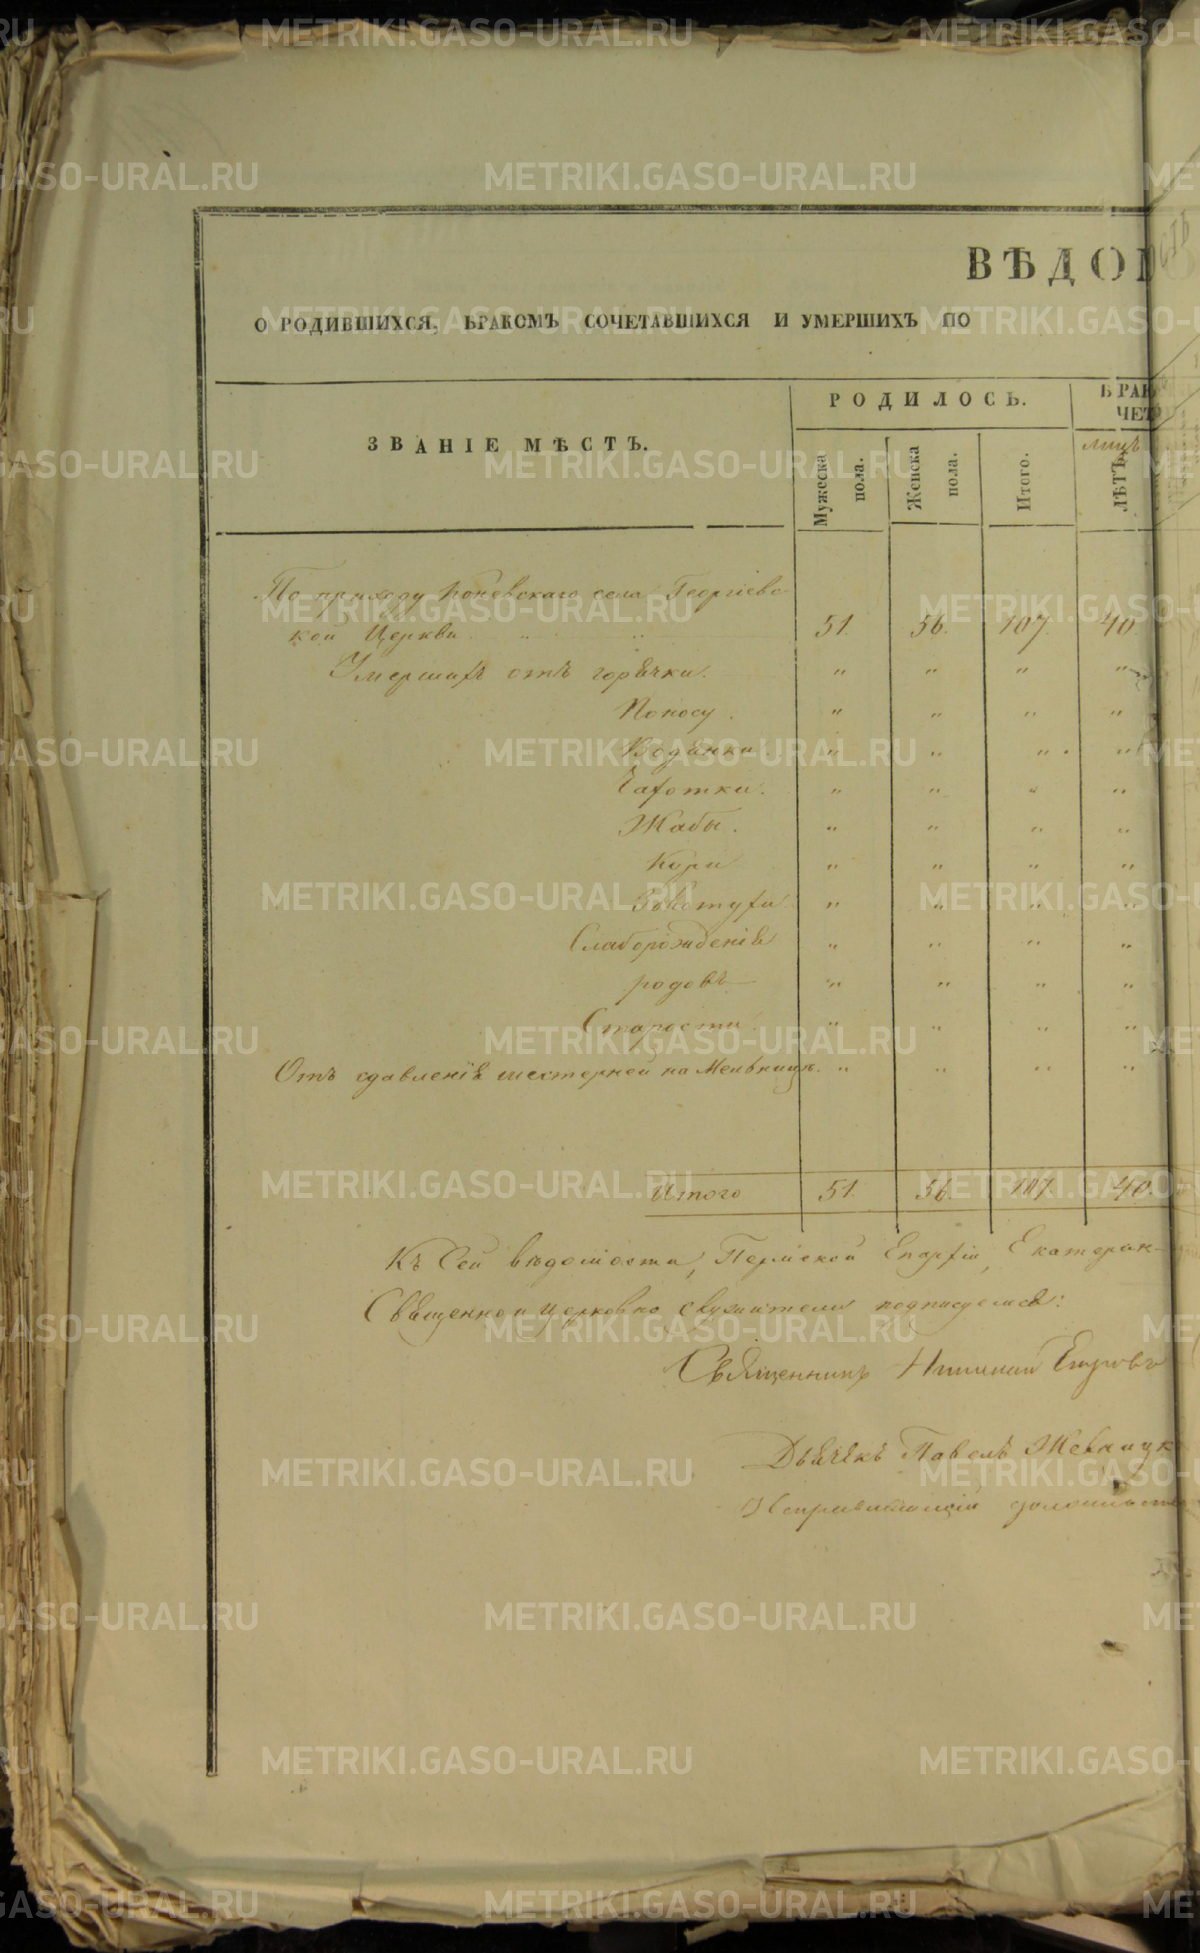 ВѢДОМ
О РОДИВШИХСЯ, БРАКОМЪ СОЧЕТАВШИХСЯ И УМЕРШИХЪ ПО
ЗВАНІЕ МѢСТЪ.
РОДИЛОСЬ.
БРАК
ЧЕТ
Мужеска пола.
Женска пола.
Итого.
лицъ
ЛѢТЪ
По приходу Коневскаго села Георгіевс
кой Церкви 51. 56. 107. 40.
Умершихъ отъ горячки. " " " "
Поносу. " " " "
Водянки. " " " "
Чахотки. " " " "
Жабы. " " " "
Кори " " " "
Золотухи " " " "
Слаборожденія " " " "
родовъ " " " "
Старости. " " " "
Отъ сдавленія шестерней на Мельницѣ. " " " "
Итого 51. 56. 107. 40.
Къ Сей вѣдомости, Пермской Епархіи, Екатерин-
Священно и церковно служители подписуемся:
Священникъ
Дьячекъ Павелъ
METRIKI.GASO-URAL.RU